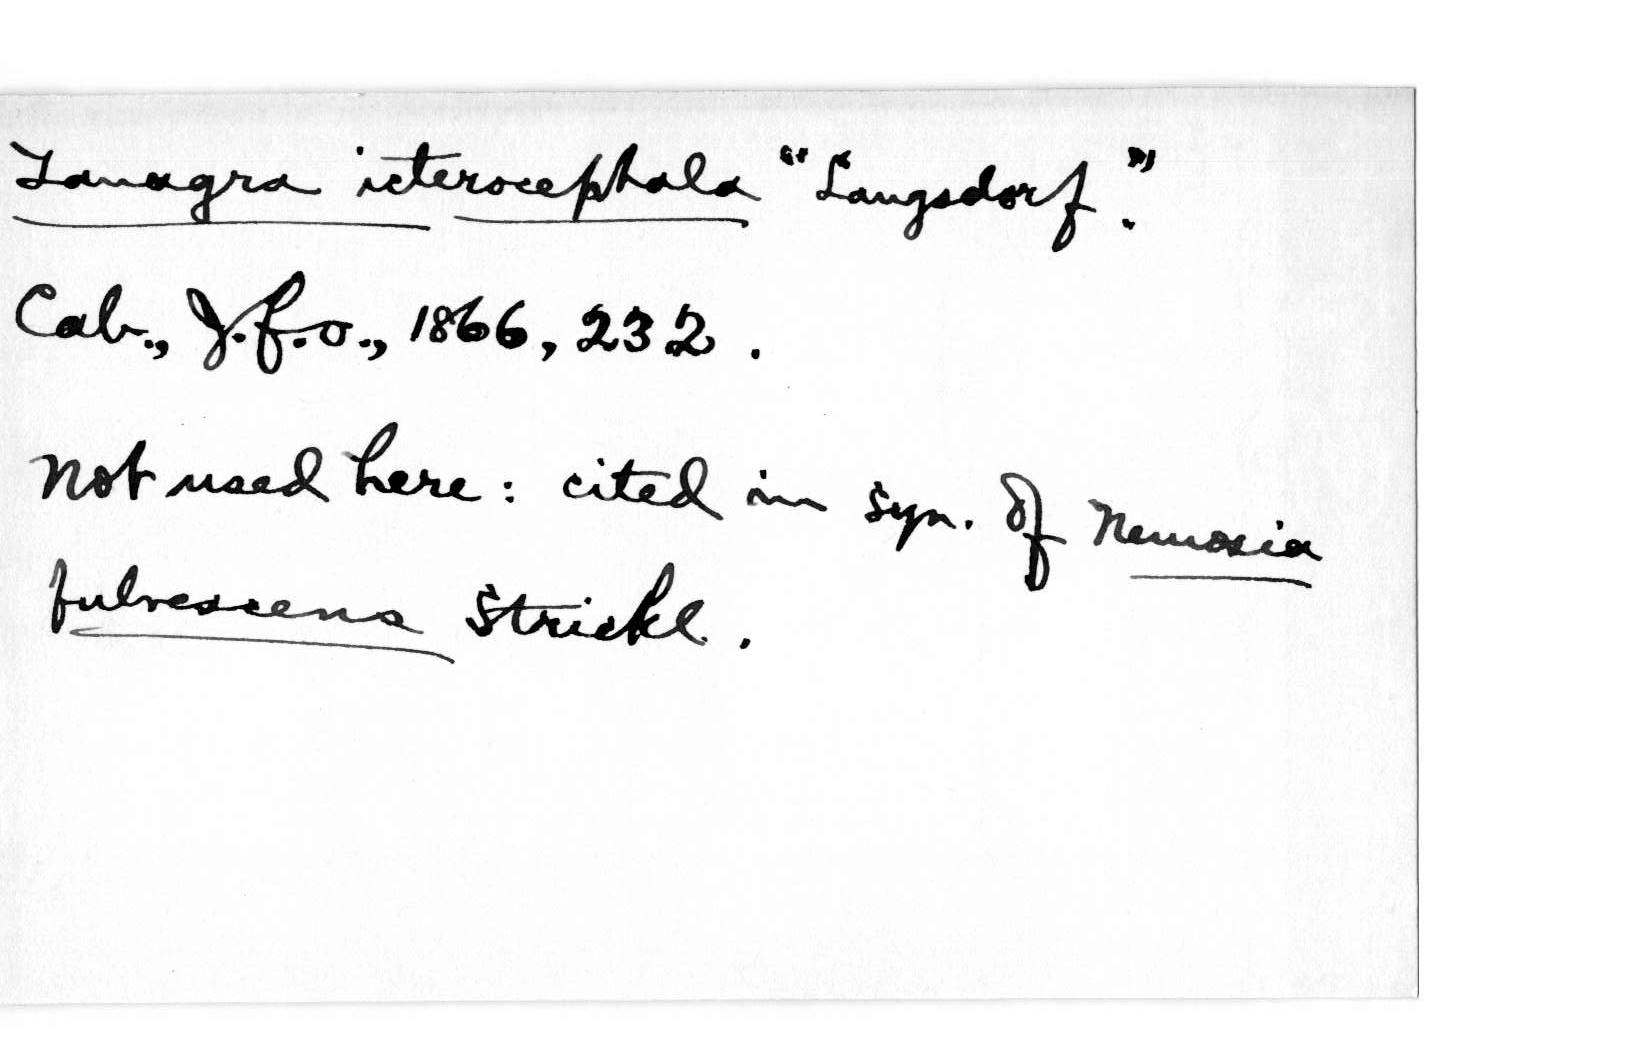 Tanagra icterocephala "Langsdorf".
Cab., J.f.o., 1866, 232.
Not used here: cited in syn. of Nemosia
fulvescens Strickl.